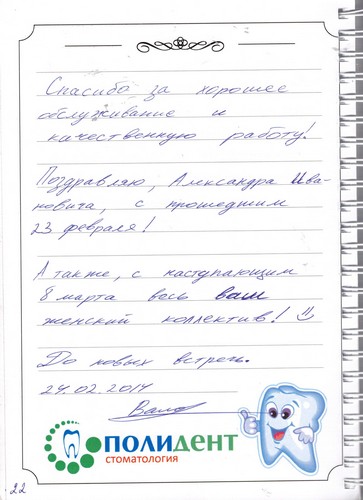 Спасибо за хорошее
обслуживание и
качественную работу!
Поздравляю, Александра Ива-
новича, с прошедшим
23 февраля!
А также, с наступающим
8 марта весь ваш
женский коллектив! :)
До новых встреч.
24.02.2014
ПОЛИДЕНТ
СТОМАТОЛОГИЯ
22